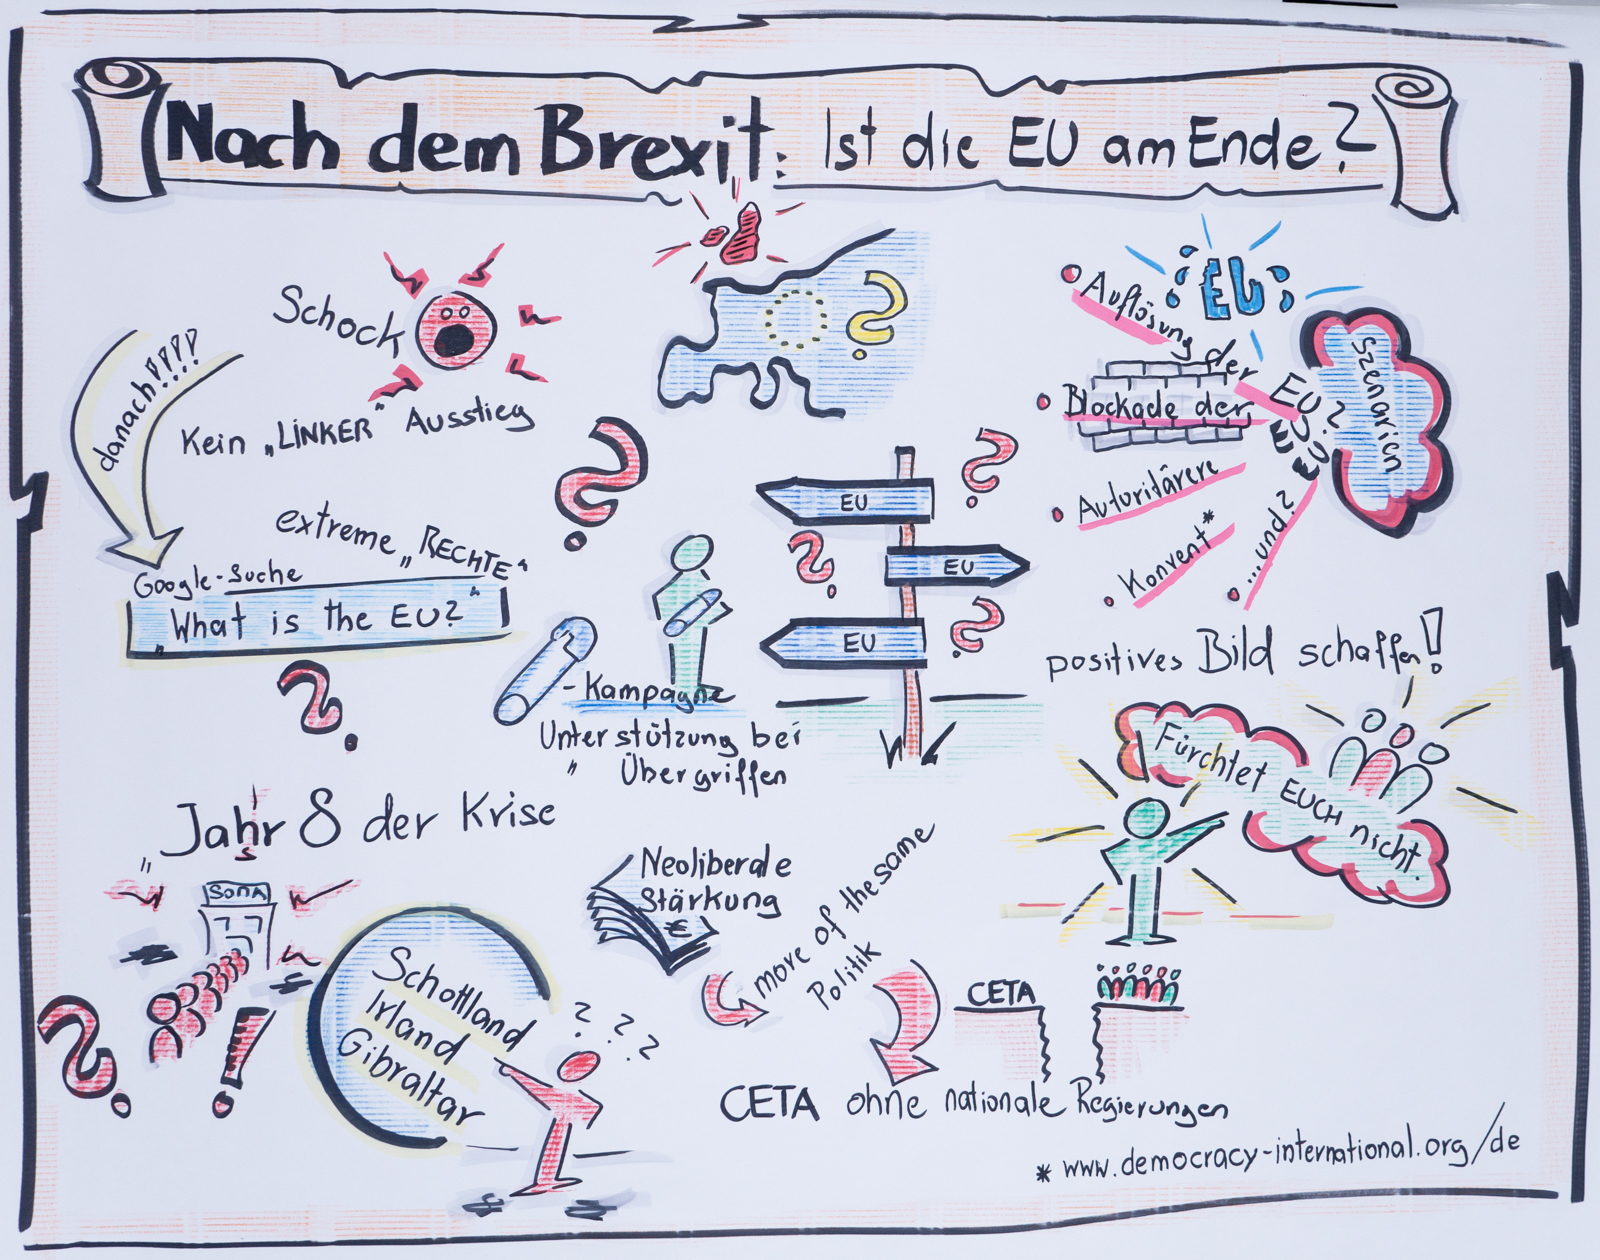 Nach dem Brexit: Ist die EU am Ende?
Schock
danach!!!!
Kein „LINKER" Ausstieg
extreme „RECHTE"
Google-Suche
„What is the EU?"
EU
EU
EU
- Kampagne
Unterstützung bei
" Übergriffen
EU
Auflösung der EU?
Blockade der EU?
Autoritärere EU?
Konvent*
...und?
Szenarien
positives Bild schaffen!
Fürchtet EUCH nicht.
„Jahr 8 der Krise
SOMA
Schottland
Irland
Gibraltar
? ? ?
Neoliberale
Stärkung
€
more of the same
Politik
CETA
CETA ohne nationale Regierungen
* www.democracy-international.org/de